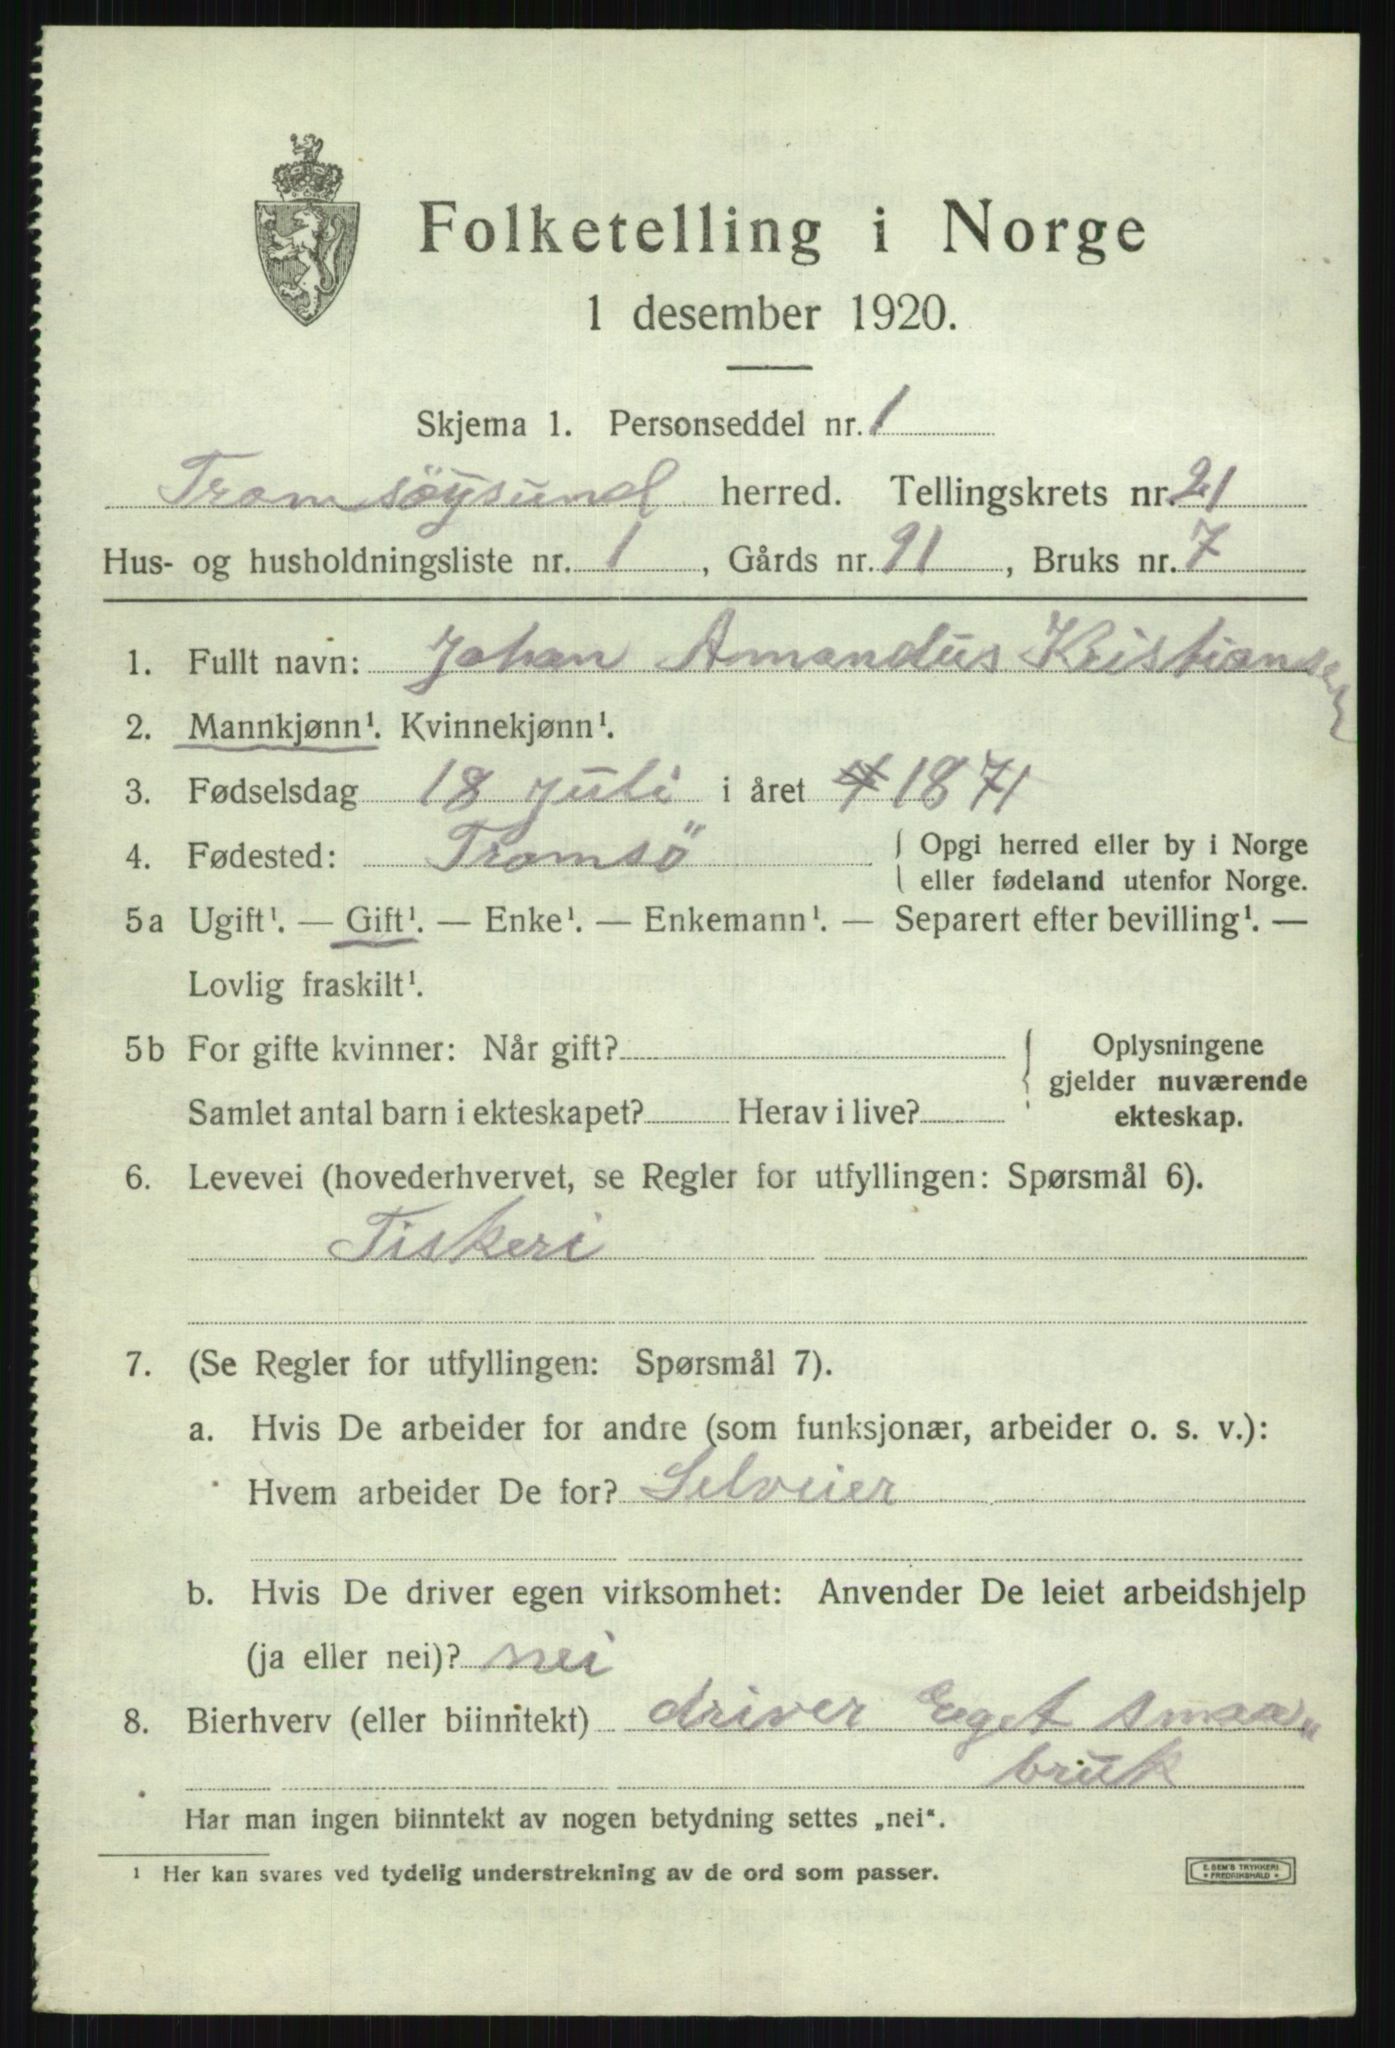 Folketelling i Norge
1 desember 1920.
Skjema 1. Personseddel nr. 1
Tromsöysund herred. Tellingskrets nr. 21
Hus- og husholdningsliste nr. 1, Gårds nr. 91, Bruks nr. 7
1. Fullt navn: Johan Amandus Kristiansen
2. Mannkjønn¹. Kvinnekjønn¹.
3. Fødselsdag 18 juli i året 1871
4. Fødested: Tromsö { Opgi herred eller by i Norge
eller fødeland utenfor Norge.
5a Ugift¹. — Gift¹. — Enke¹. — Enkemann¹. — Separert efter bevilling¹. —
Lovlig fraskilt¹.
5b For gifte kvinner: Når gift? { Oplysningene
gjelder nuværende
Samlet antal barn i ekteskapet? Herav i live? ekteskap.
6. Levevei (hovederhvervet, se Regler for utfyllingen: Spørsmål 6).
Fiskeri
7. (Se Regler for utfyllingen: Spørsmål 7).
a. Hvis De arbeider for andre (som funksjonær, arbeider o. s. v.):
Hvem arbeider De for? Selveier
b. Hvis De driver egen virksomhet: Anvender De leiet arbeidshjelp
(ja eller nei)? nei
8. Bierhverv (eller biinntekt) driver Eget smaa„
bruk
Har man ingen biinntekt av nogen betydning settes „nei“.
¹ Her kan svares ved tydelig understrekning av de ord som passer.
E. SEM'S TRYKKERI
• FREDRIKSHALD •